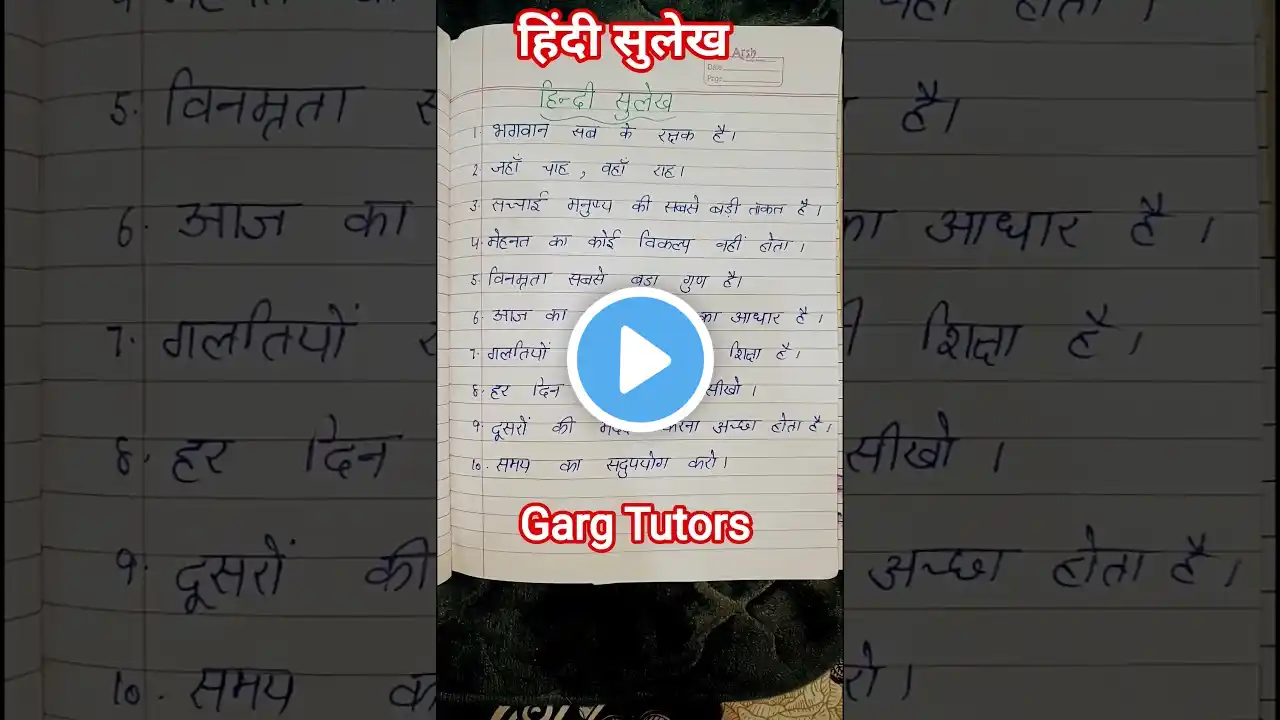 हिंदी सुलेख
Arsh
Date
Page
हिन्दी सुलेख
1. भगवान सब के रक्षक है।
2. जहाँ चाह, वहाँ राह।
3. सच्चाई मनुष्य की सबसे बड़ी ताकत है।
4. मेहनत का कोई विकल्प नहीं होता।
5. विनम्रता सबसे बड़ा गुण है।
6. आज का का आधार है।
7. गलतियों शिक्षा है।
8. हर दिन सीखो।
9. दूसरों की मदद करना अच्छा होता है।
10. समय का सदुपयोग करो।
Garg Tutors